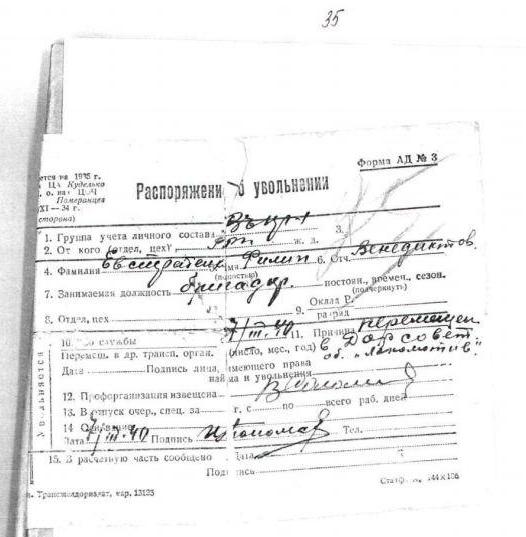 35
ется на 1935 г.
ЦА Куделько
о. нач ЦОЧ
Померанцев
XI — 34 г.
сторона)
Форма АД № 3
Распоряжени об увольнении
1. Группа учета личного состава 3.
2. От кого (отдел, цех) ж. д.
4. Фамилия Евстратец Имя Филип 6. Отч. Венедиктов
(полностью)
7. Занимаемая должность бригадир постоян., времен., сезон.
(подчеркнуть)
8. Отдел, цех 9. разряд Оклад Р.
10. службы 7/III-40 11. Причина перемещен
Перемещ. в др. трансп. орган. (число, мес., год) в Дорсовет
Дата Подпись лица, имеющего права об. „Локомотив“
найма и увольнения
увольняется
12. Профорганизация извещена
13. Отпуск очер., спец. за г. с по всего раб. дней
14
Дата 7/III-40 Подпись Тел.
15. В расчетную часть сообщено Дата
Подпись
Трансжелдориздат, кар. 13125
Статф. 144×106